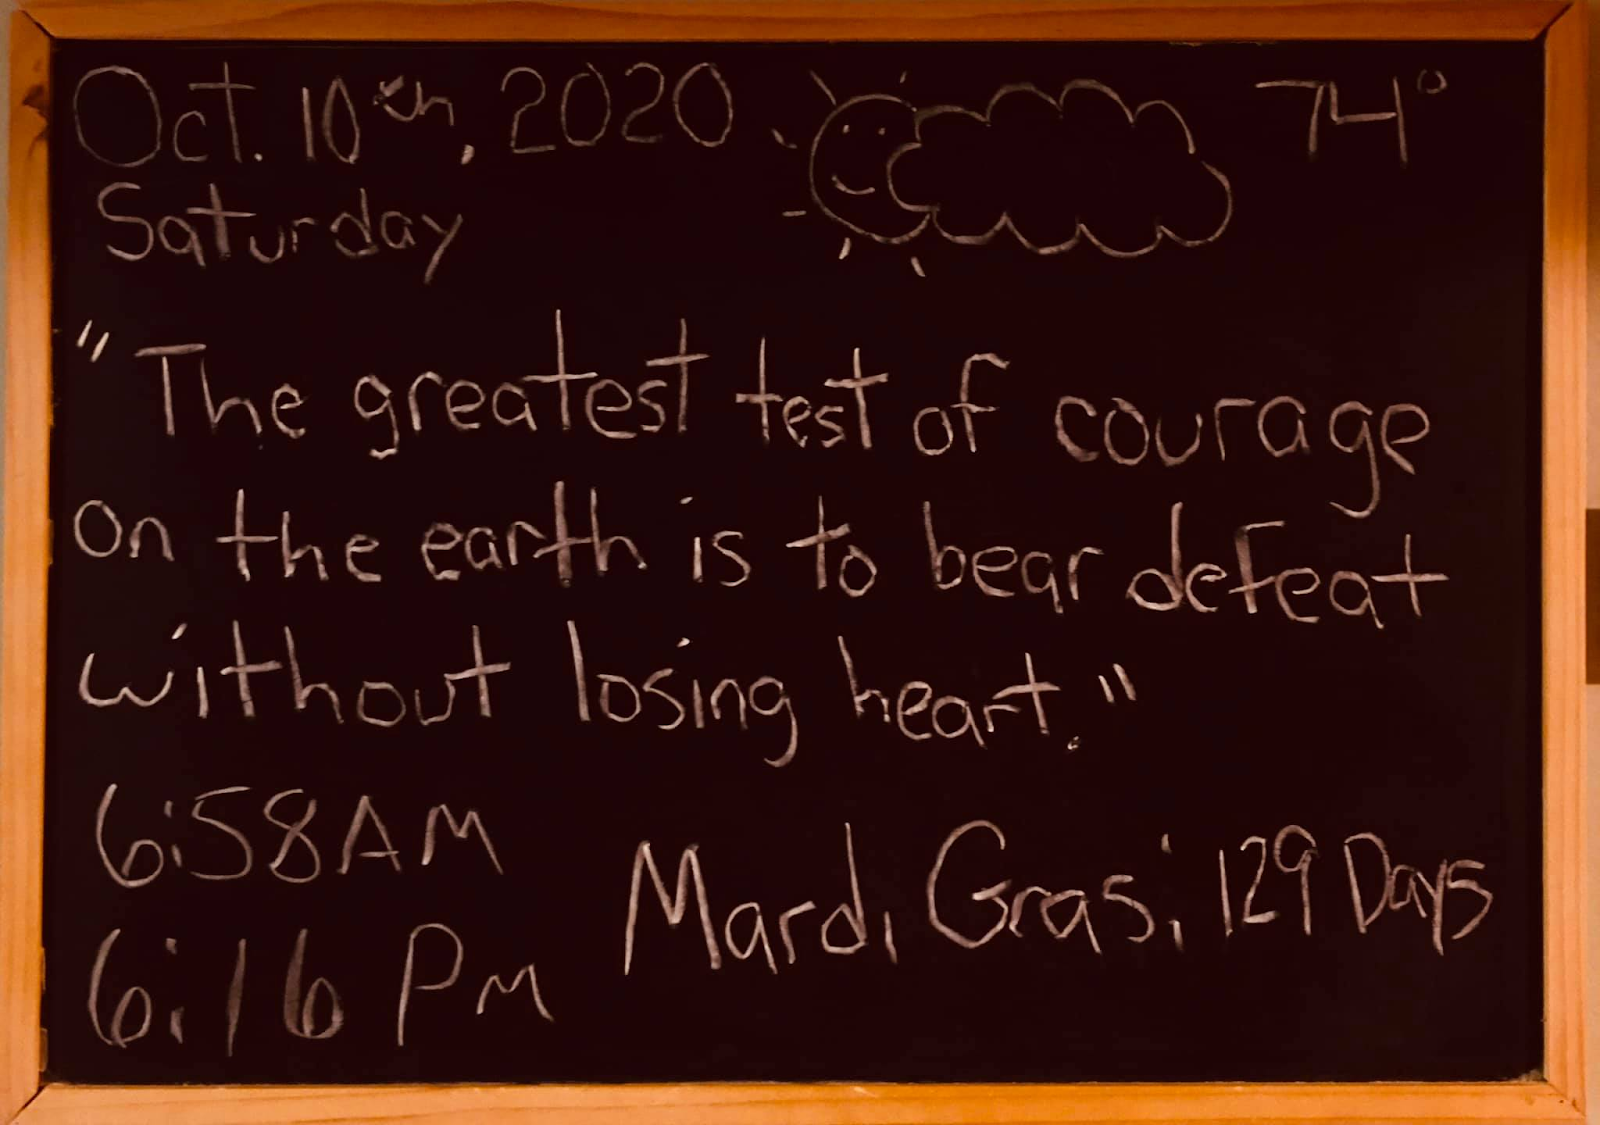 Oct. 10th, 2020 74°
Saturday
"The greatest test of courage
on the earth is to bear defeat
without losing heart."
6:58AM
Mardi Gras: 129 Days
6:16 PM